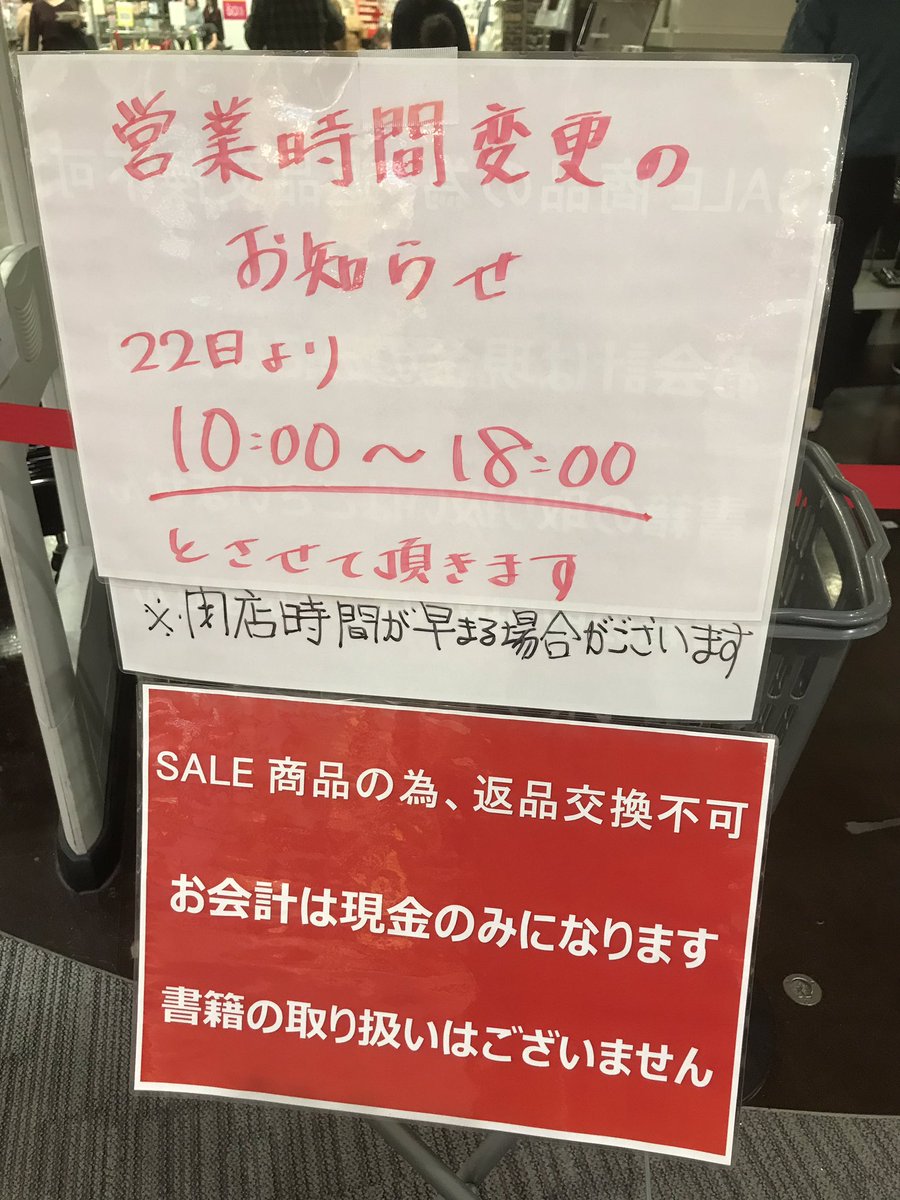 営業時間変更の
お知らせ
22日より
10:00～18:00
とさせて頂きます
※閉店時間が早まる場合がございます
SALE 商品の為、返品交換不可
お会計は現金のみになります
書籍の取り扱いはございません